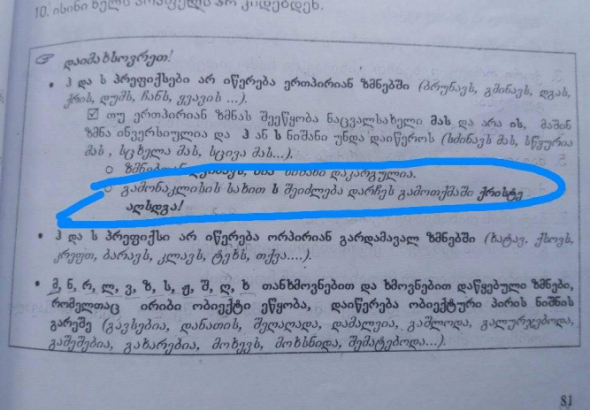 10. ისინი ხელს არაფელს არ კიდებდენ.
დაიმახსოვრეთ!
• ჰ და ს პრეფიქსები არ იწერება ერთპირიან ზმნებში (ბრუნავს, გმინავს, დგას,
ქრის, დუმს, ჩანს, ყვავის ...).
☑ თუ ერთპირიან ზმნას შეეწყობა ნაცვალსახელი მას და არა ის, მაშინ
ზმნა ინვერსიულია და ჰ ან ს ნიშანი უნდა დაიწეროს (სძინავს მას, სწყურია
მას, სცხელა მას, სცივა მას...).
ნიშანი დაკარგულია.
○ გამონაკლისის სახით ს შეიძლება დარჩეს გამოთქმაში ქრისტე
აღსდგა!
• ჰ და ს პრეფიქსი არ იწერება ორპირიან გარდამავალ ზმნებში (ხატავ, ქსოვს,
კრეფთ, ბარავს, კლავს, ტეხს, თქვა....).
• მ, ნ, რ, ლ, ვ, ზ, ს, ჟ, შ, ღ, ხ თანხმოვნებით და ხმოვნებით დაწყებული ზმნები,
რომელთაც ირიბი ობიექტი ეწყობა, დაიწერება ობიექტური პირის ნიშნის
გარეშე (გავსებია, დანათის, შეღაღადა, დამალვია, გაშლოდა, გალურჯებოდა,
გაშეშებია, გახარებია, მოხევს, მოხსნიდა, შემატებოდა...).
81